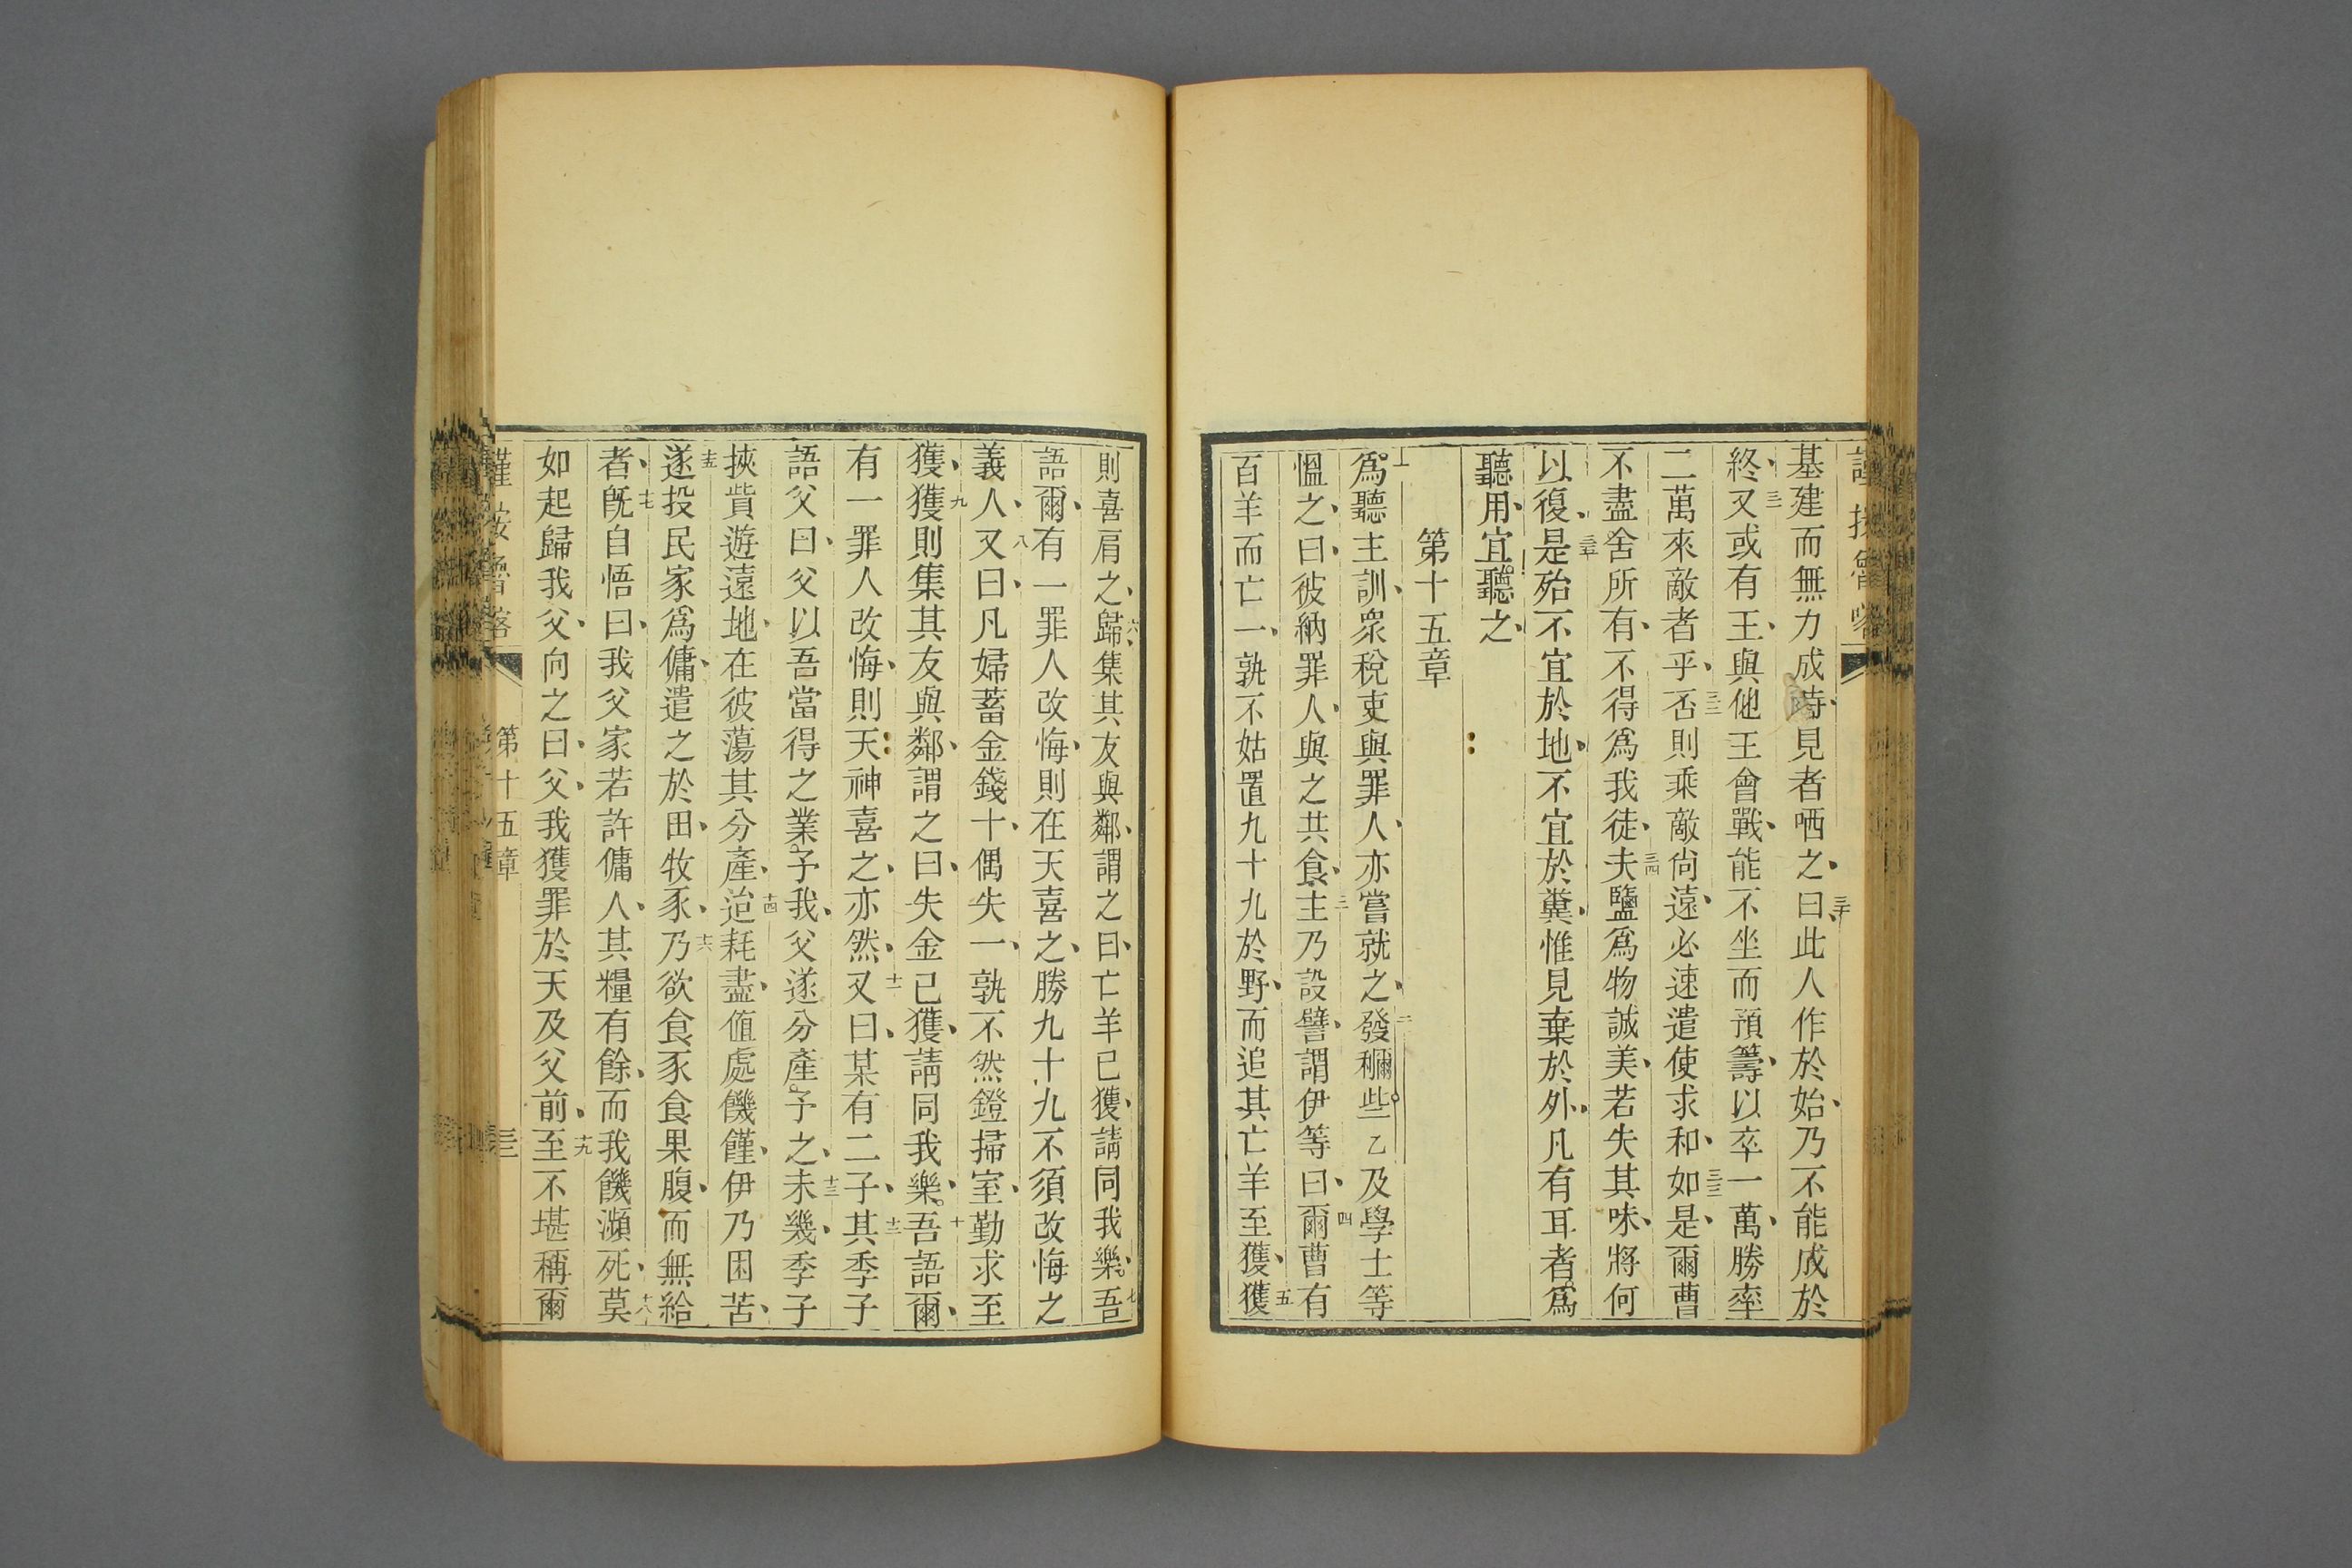 基建而無力成時見者哂之曰三十此人作於始乃不能成於
終三一又或有王與他王會戰能不坐而預籌以卒一萬勝率
二萬來敵者乎三二否則乘敵尙遠必速遣使求和三三如是爾曹
不盡舍所有不得爲我徒三四夫鹽爲物誠美若失其味將何
以復三五是殆不宜於地不宜於糞惟見棄於外凡有耳者爲
聽用宜聽之
第十五章
一爲聽主訓衆稅吏與罪人亦嘗就之二發穪些乙及學士等
慍之曰彼納罪人與之共食三主乃設譬謂伊等曰四爾曹有
百羊而亡一孰不姑置九十九於野而追其亡羊至獲五獲
則喜肩之六歸集其友與鄰謂之曰亡羊已獲請同我樂七吾
語爾有一罪人改悔則在天喜之勝九十九不須改悔之
義人八又曰凡婦蓄金錢十偶失一孰不然鐙掃室勤求至
獲九獲則集其友與鄰謂之曰失金已獲請同我樂十吾語爾
有一罪人改悔則天神喜之亦然十一又曰某有二子十二其季子
語父曰父以吾當得之業予我父遂分產予之十三未幾季子
挾貲遊遠地在彼蕩其分產十四迨耗盡値處饑饉伊乃困苦
十五遂投民家爲傭遣之於田牧豕十六乃欲食豕食果腹而無給
者十七旣自悟曰我父家若許傭人其糧有餘而我饑瀕死十八莫
如起歸我父向之曰父我獲罪於天及父前十九至不堪稱爾
第十五章